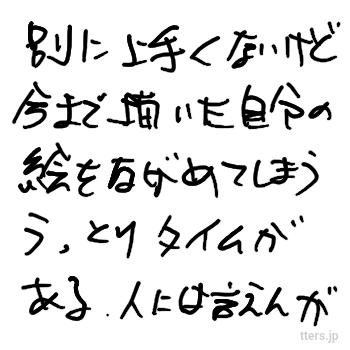 別に上手くないけど
今まで描いた自分の
絵をながめてしまう
う,とりタイムが
ある.人には言えんが
tters.jp